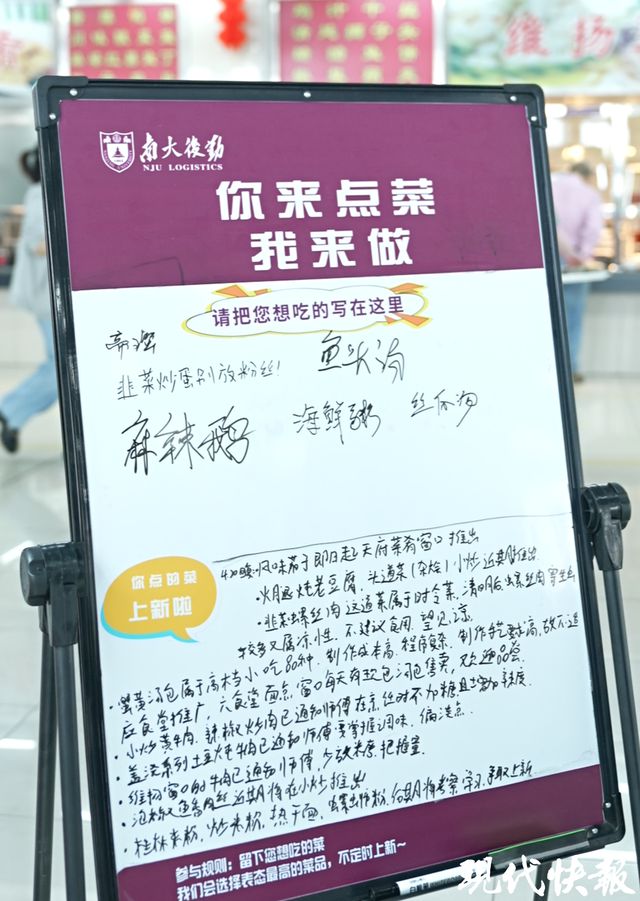 维扬
南大後勤
NJU LOGISTICS
你来点菜
我来做
请把您想吃的写在这里
韭菜炒蛋别放粉丝!
鱼头汤
麻辣鹅
海鲜粥
丝瓜汤
你点的菜
上新啦
风味茄子即日起天府菜肴窗口推出
·火腿炖老豆腐、头道菜(杂烩)小炒近期推出
·韭菜螺丝肉这道菜属于时令菜,清明后螺丝肉寄生虫
较多又属凉性,不建议食用,望见谅
·蟹黄汤包属于高档小吃品种,制作成本高,程序复杂,制作手艺要求高,故不适
应食堂推广,六食堂面点窗口每天有软包汤包售卖,欢迎品尝
·小炒黄牛肉、辣椒炒肉已通知师傅在京绝对不加糖且增加辣度
·盖浇系列土豆炖牛肉已通知师傅要掌握调味,偏淡点
·维扬窗口的牛肉已通知师傅,少放 把握量
·泡椒鱼香肉丝近期将在小炒推出
·桂林米粉、炒米粉、热干面、螺蛳粉、后期将考察学习,争取上新
参与规则:留下您想吃的菜
我们会选择表态最高的菜品,不定时上新~
现代快报